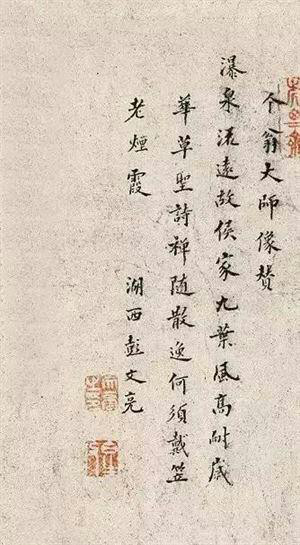 个翁大师像赞
瀑泉流遠故侯家九葉風高耐歲
華草聖詩禅随散逸何須戴笠
老煙霞　湖西彭文亮